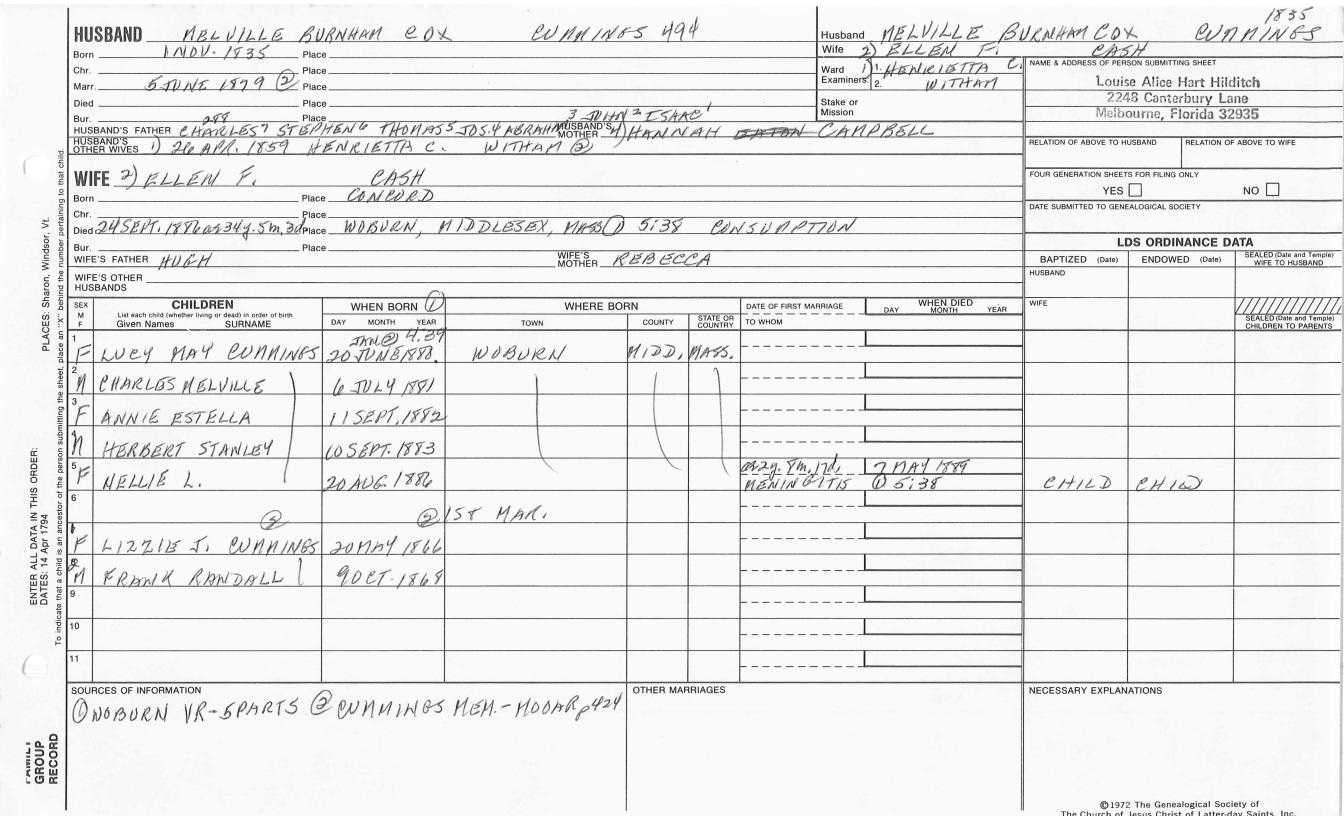 HUSBAND MELVILLE BURNHAM COX CUMMINGS 494
Born 1 NOV. 1835 Place
Chr. Place
Marr. 5 JUNE 1879 ② Place
Died Place
Bur. Place
288 3 JOHN 2 ISAAC 1
HUSBAND'S FATHER CHARLES 7 STEPHEN 6 THOMAS 5 JOS. 4 ABRAHAM HUSBAND'S MOTHER 4) HANNAH EATON CAMPBELL
HUSBAND'S OTHER WIVES 1) 26 APR. 1859 HENRIETTA C. WITHAM ②
WIFE 2) ELLEN F. CASH
Born Place CONCORD
Chr. Place
Died 24 SEPT. 1886 as 34y. 5m, 3d Place WOBURN, MIDDLESEX, MASS ① 5:38 CONSUMPTION
Bur. Place
WIFE'S FATHER HUGH WIFE'S MOTHER REBECCA
WIFE'S OTHER HUSBANDS
1835
Husband MELVILLE BURNHAM COX CUMMINGS
Wife 2) ELLEN F. CASH
Ward Examiners 1) 1. HENRIETTA C.
2. WITHAM
Stake or Mission
NAME & ADDRESS OF PERSON SUBMITTING SHEET
Louise Alice Hart Hilditch
2248 Canterbury Lane
Melbourne, Florida 32935
RELATION OF ABOVE TO HUSBAND RELATION OF ABOVE TO WIFE
FOUR GENERATION SHEETS FOR FILING ONLY
YES NO
DATE SUBMITTED TO GENEALOGICAL SOCIETY
LDS ORDINANCE DATA
BAPTIZED (Date) ENDOWED (Date) SEALED (Date and Temple) WIFE TO HUSBAND
HUSBAND
WIFE
SEALED (Date and Temple) CHILDREN TO PARENTS
SEX M F CHILDREN WHEN BORN ① WHERE BORN DATE OF FIRST MARRIAGE WHEN DIED
List each child (whether living or dead) in order of birth
Given Names SURNAME DAY MONTH YEAR TOWN COUNTY STATE OR COUNTRY TO WHOM DAY MONTH YEAR
JAN ② 4.39
1 F LUCY MAY CUMMINGS 20 JUNE 1880. WOBURN MIDD, MASS.
2 M CHARLES MELVILLE 6 JULY 1881
3 F ANNIE ESTELLA 11 SEPT, 1882
4 M HERBERT STANLEY 10 SEPT. 1883
as 2y. 8m. 17d. 7 MAY 1889
5 F NELLIE L. 20 AUG. 1886 MENINGITIS ① 5:38 CHILD CHILD
6 ② ② 1ST MAR.
F LIZZIE J. CUMMINGS 20 MAY 1866
M FRANK RANDALL 9 OCT. 1868
9
10
11
SOURCES OF INFORMATION
① WOBURN VR-5PARTS ② CUMMINGS MEM.-MOOAR p424
OTHER MARRIAGES
NECESSARY EXPLANATIONS
©1972 The Genealogical Society of
The Church of Jesus Christ of Latter-day Saints, Inc.
ENTER ALL DATA IN THIS ORDER:
DATES: 14 Apr 1794 PLACES: Sharon, Windsor, Vt.
To indicate that a child is an ancestor of the person submitting the sheet, place an "X" behind the number pertaining to that child.
FAMILY GROUP RECORD